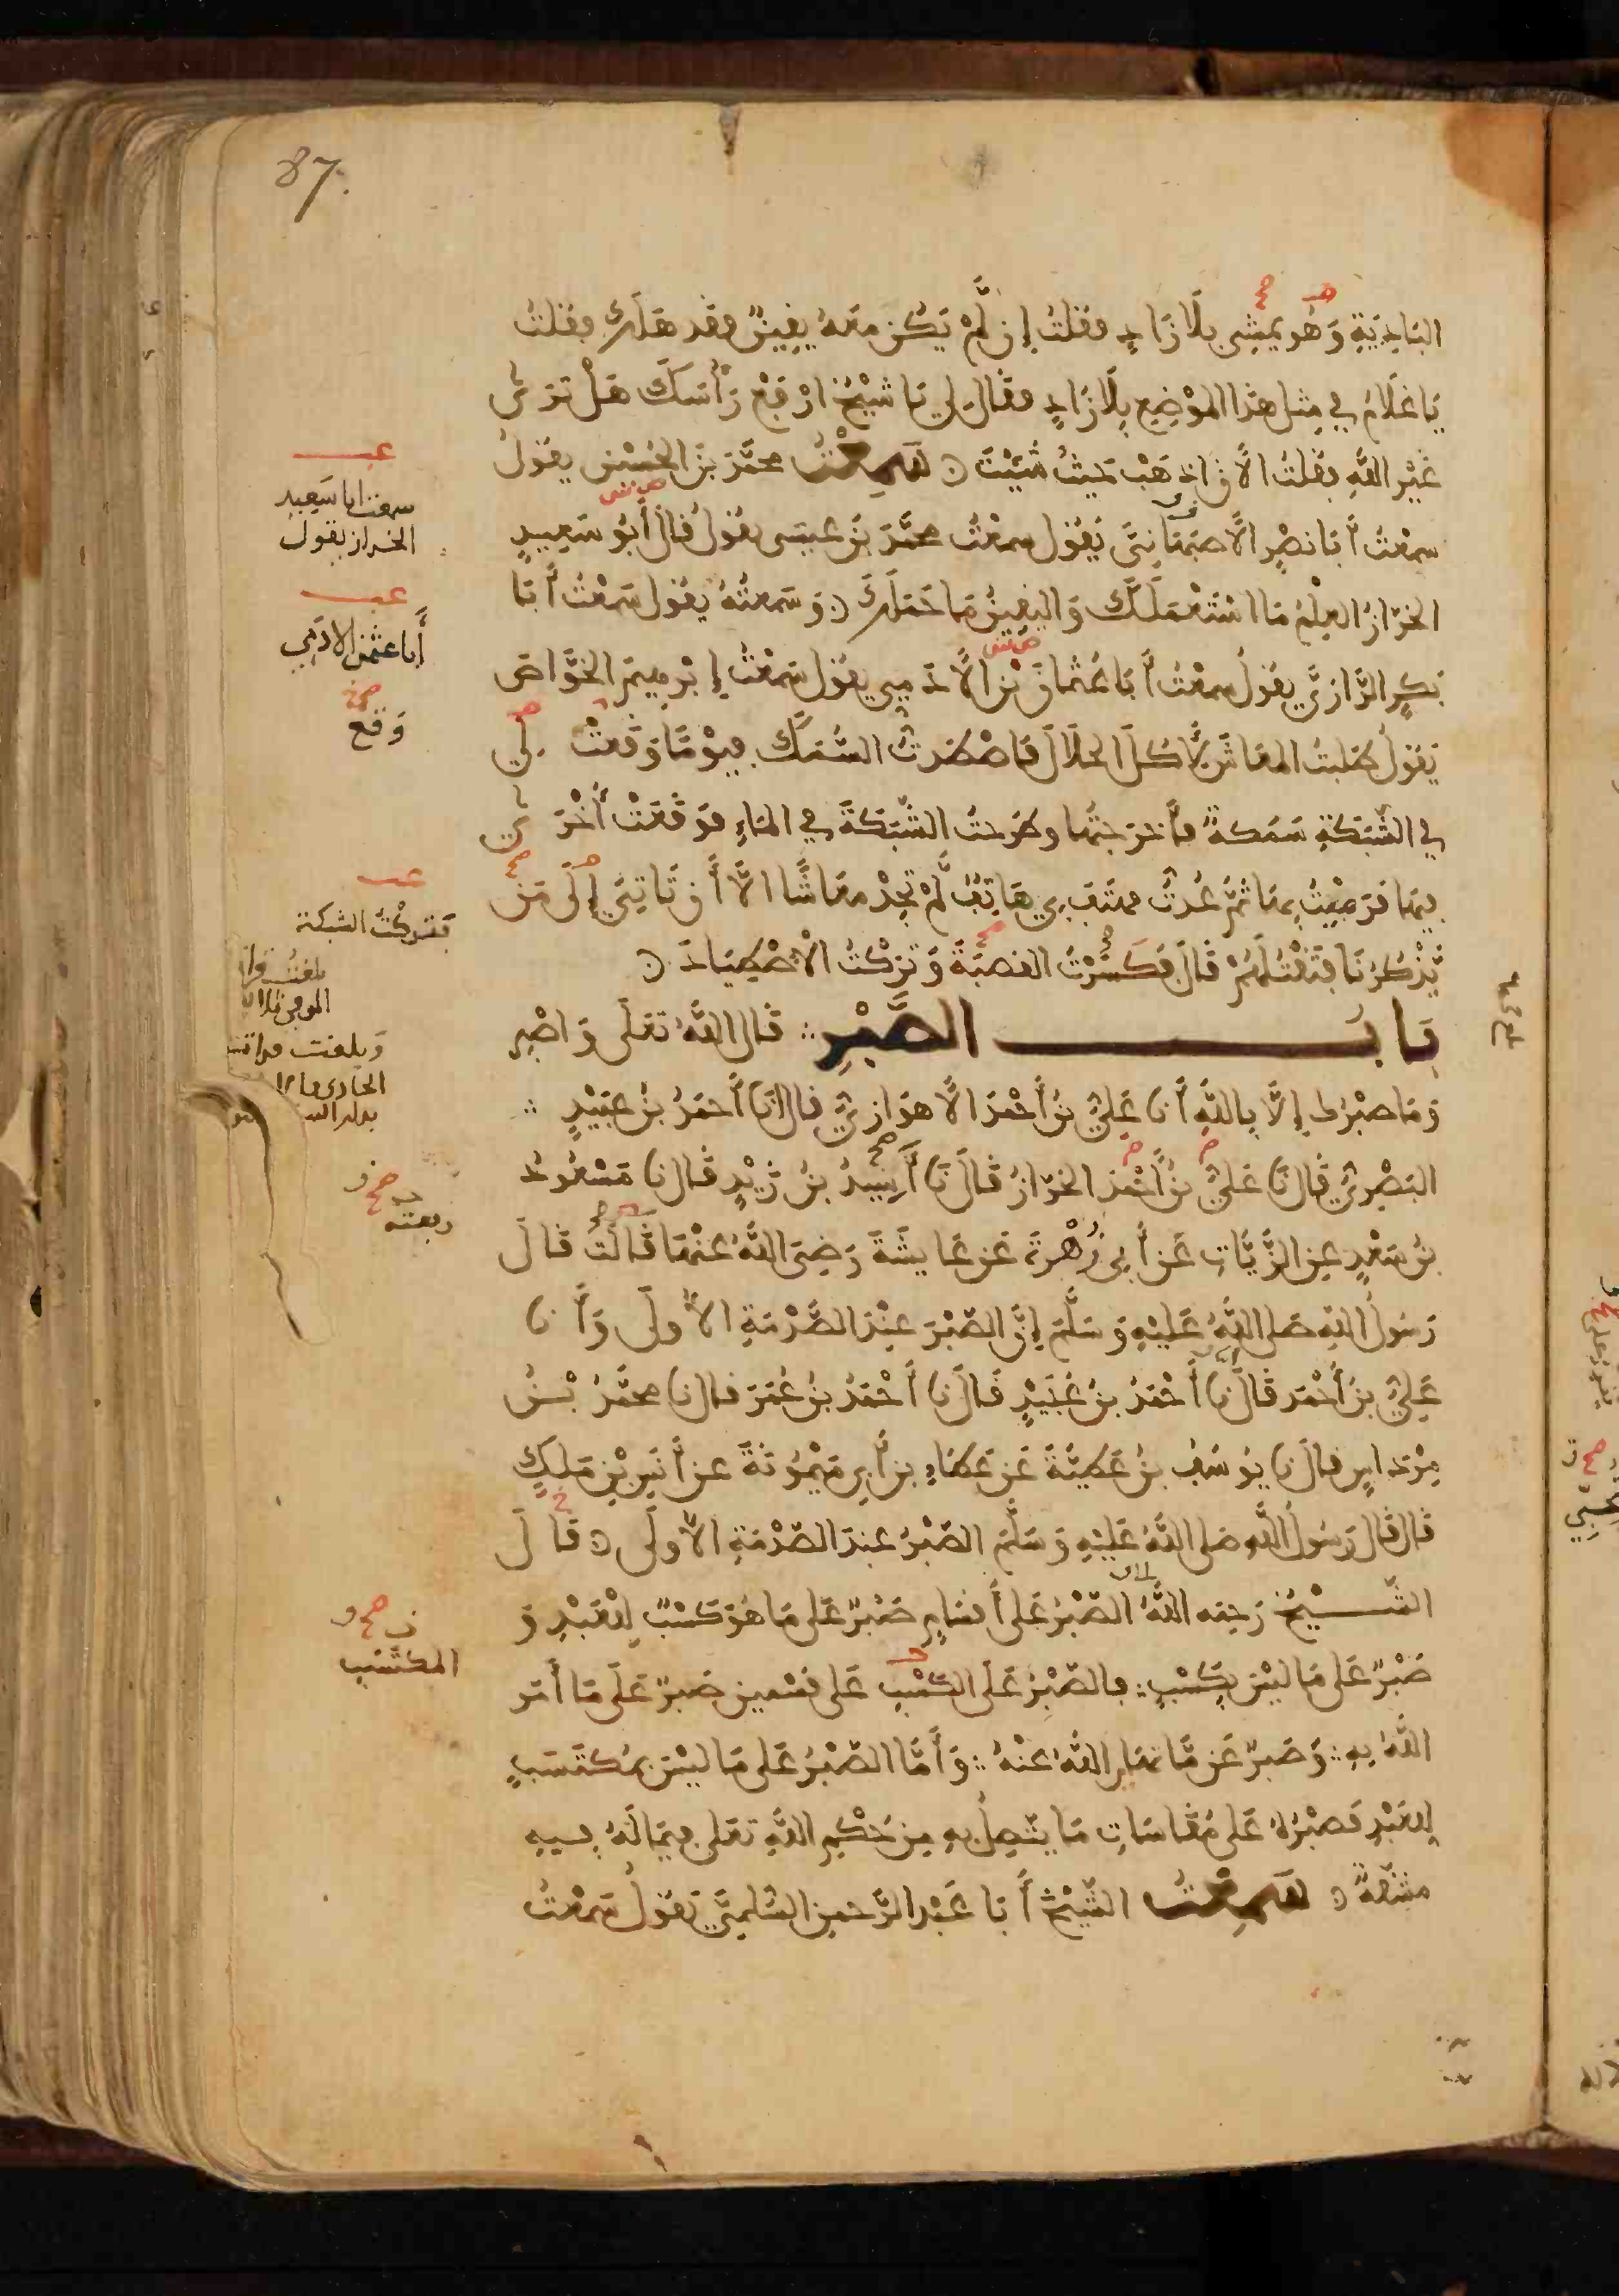 87.
البَادِيَةِ وَهُو يَمْشِى بِلَا زَادٍ فقلتُ إن لَّمْ يَكُن مَعَهُ يقينٌ فقد هَلَكَ فقلتُ
يَا غُلَامُ في مِثل هَذا المَوْضِعِ بِلَا زَادٍ فقالَ لي يَا شَيْخُ ارْفَعْ رَأْسَكَ هَلْ تَرَى
غَيْر اللَّهِ فقلتُ الآن اذهَبْ حَيثُ شِئْتَ سَمِعْتُ محمَّدَ بنَ الحُسَين يقولُ
سمعْتُ أَبَا نصْرٍ الأصْبَهَانِيَّ يَقول سمعْتُ محمَّدَ بنَ عيسَى يقولُ قالَ أَبُو سَعِيدٍ
الخرّازُ العِلْمُ مَا اسْتَعْمَلَكَ وَاليقِينُ مَا حَمَلَكَ وَسَمعتُهُ يقول سَمعْتُ أَبَا
بَكرٍ الرَّازيَّ يقولُ سمعْتُ أَبَا عُثمانَ بْن الأَدَمِي يقول سَمعْتُ إبْرهِيمَ الخَوَّاصَ
يَقولُ طَلبتُ المعَاشَ لِآكلَ الحلَالَ فَاصْطَدتُ السَّمَكَ فيوْمًا وَقَعَتْ لِي
في الشَّبَكَةِ سَمَكةٌ فأَخرَجتُها وطرَحتُ الشَّبَكَةَ في المَاءِ فوَقَعَتْ أُخْرَى
فيهَا فرَمَيْتُ بِهَا ثُمَّ عُدتُ فهَتَفَ بِي هَاتِفٌ لَّمْ تَجِدْ معَاشًا إلَّا أَن تَاتِيَ إلَى مَن
يَّذْكُرنَا فتَقْتُلَهُمْ قَالَ فكَسَّرْتُ القصَبَةَ وَتَرَكْتُ الاصْطِيَادَ
بَابُ الصَّبْرِ قَال اللَّهُ تعَلَى وَاصْبِر
وَمَا صبْرُكَ إلَّا بِاللَّهِ أَنا عَلِيُّ بنُ أَحْمَدَ الأَهوَازيُّ قالَ أَنَا أَحمَدُ بنُ عُبَيْدٍ
البَصْرِيُّ قالَ نَا عَليُّ بنُ أَحْمَدَ الخرّازُ قَالَ نَا أَسِيدُ بنُ زَيْدٍ قَال نا مَسْعُودُ
بنُ سَعْدٍ عنِ الزَّيَّاتِ عَن أَبِي هُرَيْرَةَ عَن عَايِشَةَ رَضِيَ اللَّهُ عنْهَا قَالَتْ قَالَ
رَسُولُ اللَّهِ صَلى اللَّهُ عَلَيْهِ وَسَلَّمَ إنَّ الصَّبْرَ عِنْدَ الصَّدْمَةِ الأُولَى وَأَنا
عَلِيُّ بنُ أَحْمَد قَالَ نَا أَحْمَدُ بنُ عُبَيْدٍ قَالَ نا أَحْمَدُ بنُ عُمَرَ قال نا محمَّدُ بْنُ
مِرْدَاسٍ قالَ نا يُوسُف بنُ عَطِيَّةَ عَن عَطَاءِ بن أَبِي مَيْمُونَةَ عن أَنَسِ بْنِ مَلِكٍ
قَال قَال رَسُولُ اللَّه صَلى اللَّهُ عَلَيْهِ وَسَلَّمَ الصَّبْرُ عندَ الصَّدْمَةِ الأُولَى قَالَ
الشَّيْخُ رَحِمَه اللَّهُ الصَّبْرُ عَلى أَقسَامٍ صَبْرٌ عَلَى مَا هُوَ كَسْبٌ لِلْعَبْدِ وَ
صَبْرٌ عَلَى مَا لَيْسَ بِكَسْبٍ فالصَّبْرُ عَلَى الكَسْبِ عَلى قسْمين صَبرٌ عَلَى مَا أَمَر
اللَّهُ بِهِ وَصَبرٌ عَن مَّا نهَى اللَّهُ عَنْهُ وَأَمَّا الصَّبْرُ عَلى مَا لَيْسَ بِمُكتَسَبٍ
لِلعَبْدِ فَصبْرُهُ عَلى مُقَاسَاتِ مَا يَتَّصِلُ بهِ مِن حُكْمِ اللَّهِ تَعَلَى فيمَا لَهُ فِيهِ
مشَقَّةٌ سَمِعْتُ الشَّيْخَ أَبَا عَبْدِ الرَّحمنِ السُّلَمِيَّ يَقولُ سَمعْتُ
سمعت ابا سَعِيد
الخراز يقول
أَبا عثمن الادَمِي
وَقع
فَتركْتُ الشبكة
المكتَسَب